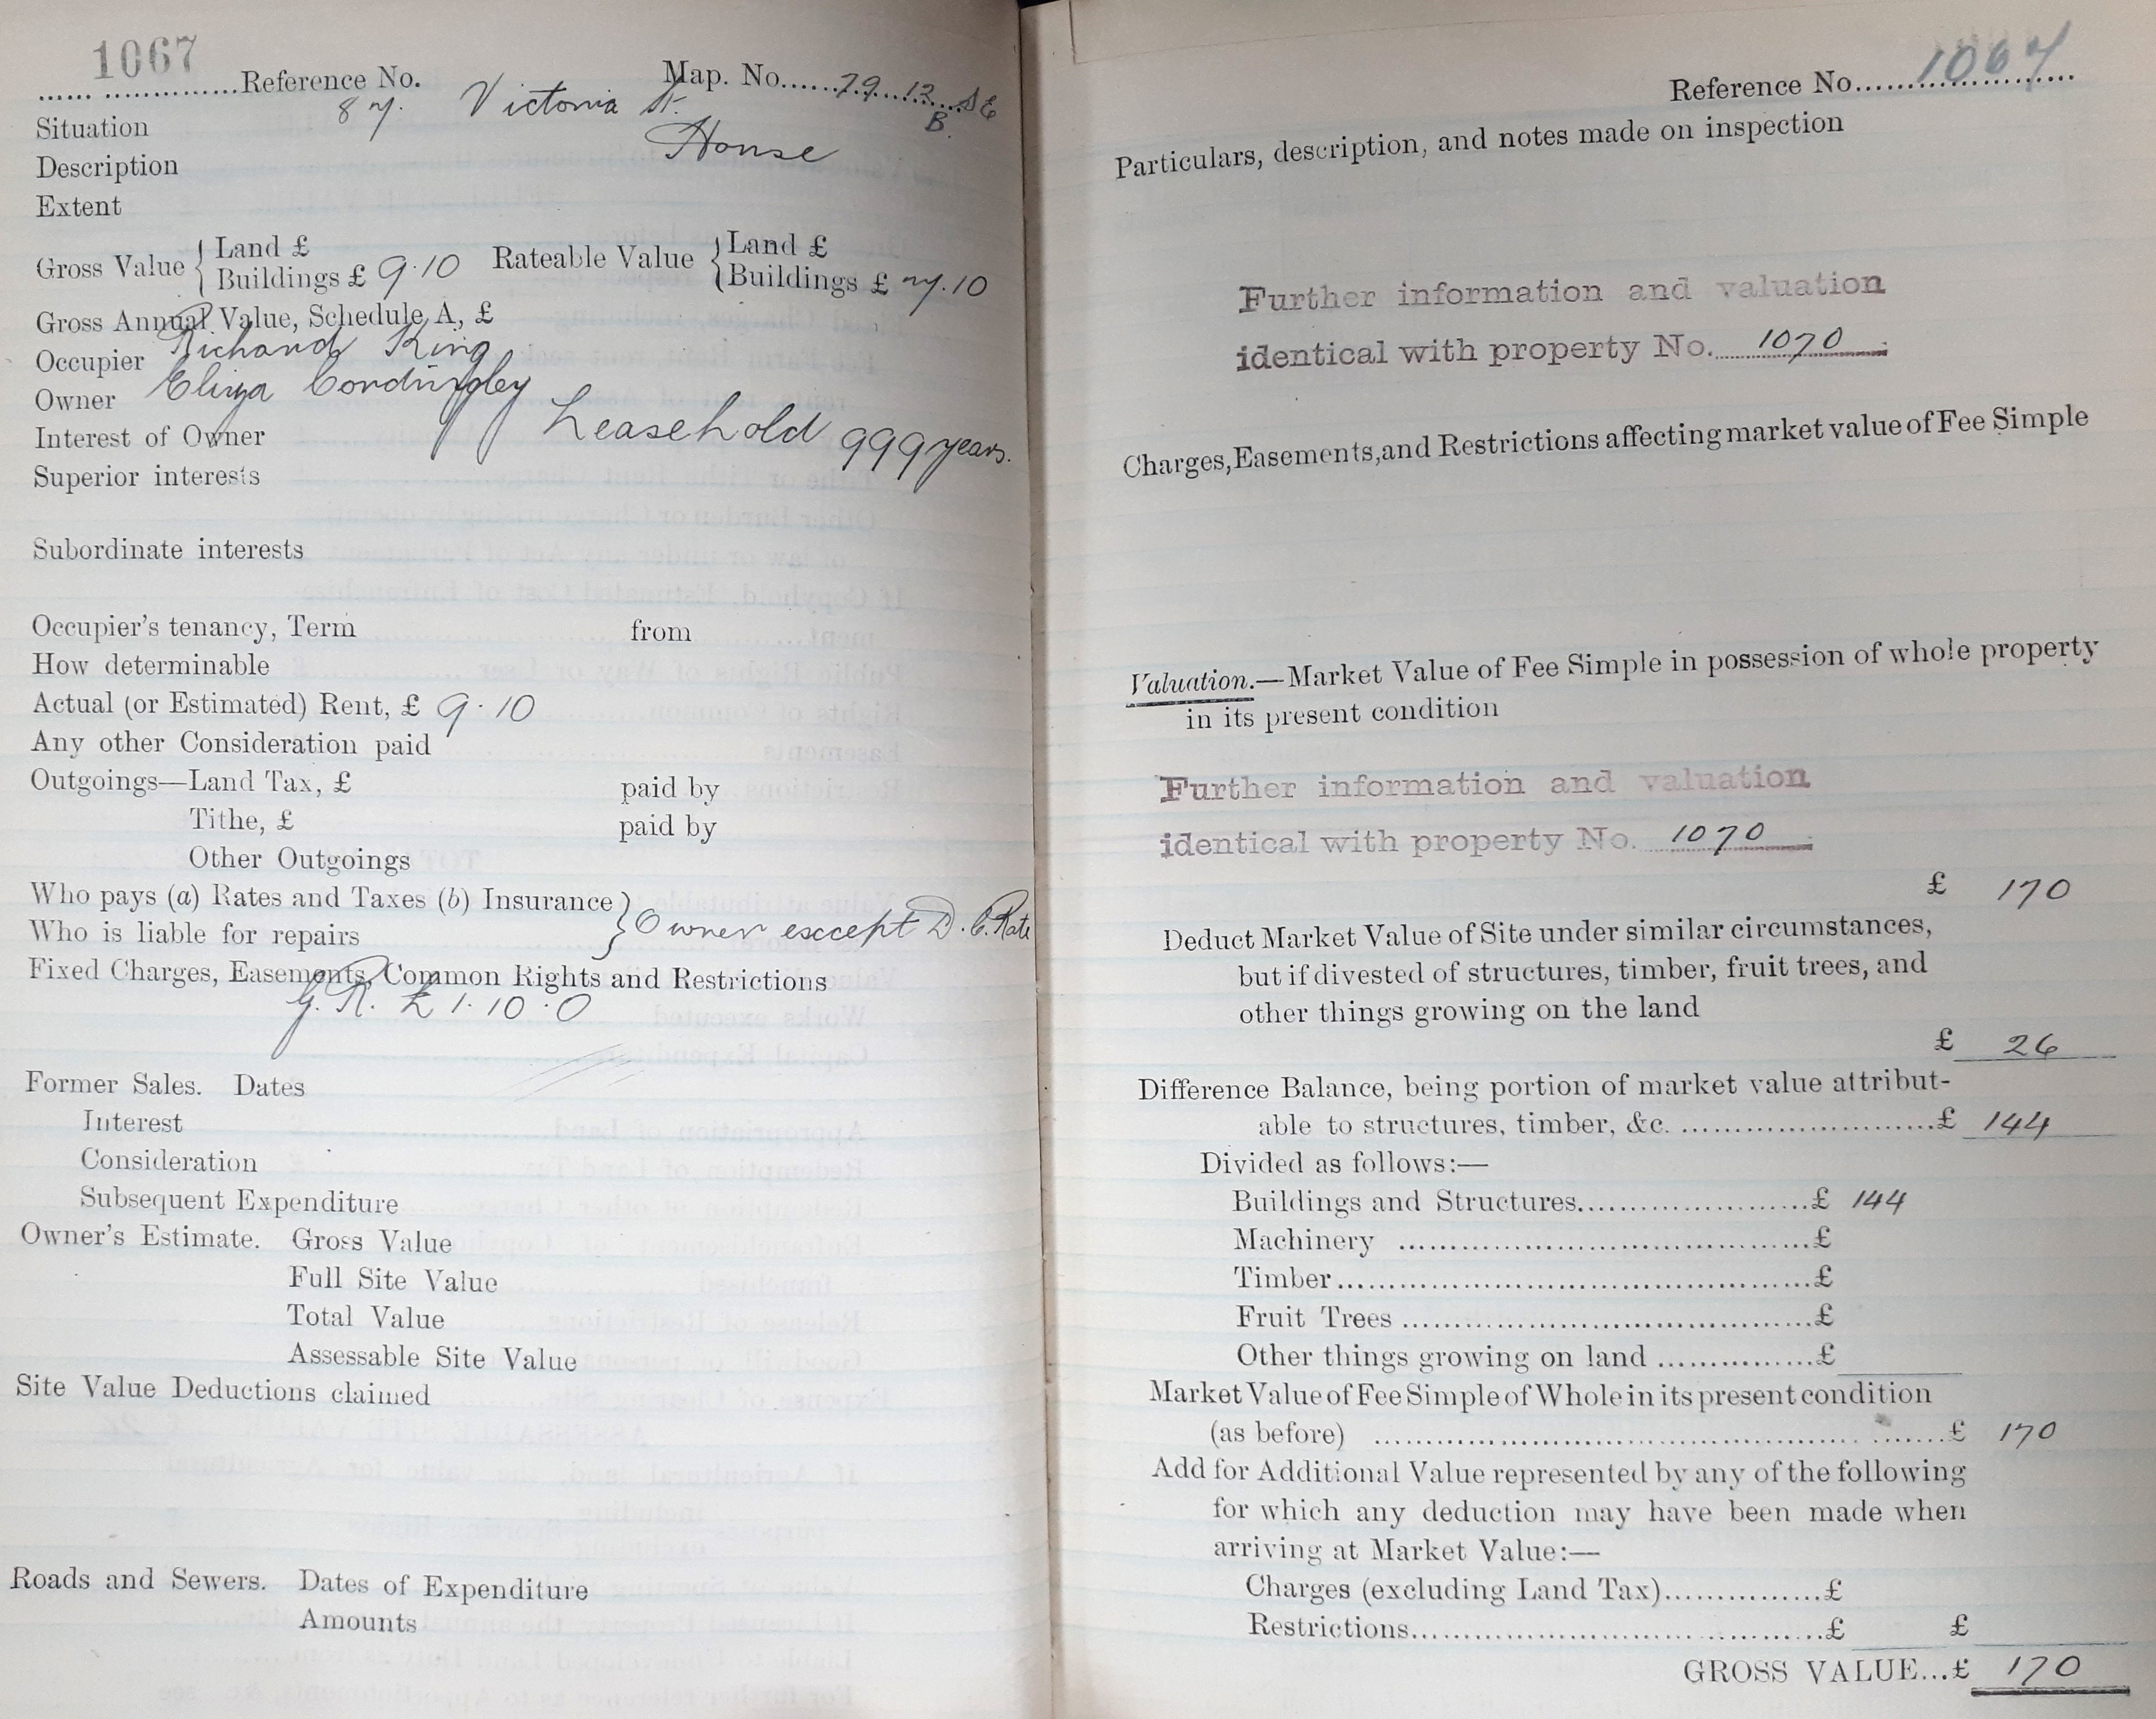 1067
...... ...............Reference No. Map. No......79.12.SE
B.
Situation 87. Victoria St.
Description House
Extent
Gross Value { Land £ Rateable Value { Land £
Buildings £ 9.10 Buildings £ 7.10
Gross Annual Value, Schedule A, £
Occupier Richard King
Owner Eliza Cordingley
Interest of Owner Leasehold 999 years.
Superior interests
Subordinate interests
Occupier's tenancy, Term from
How determinable
Actual (or Estimated) Rent, £ 9.10
Any other Consideration paid
Outgoings—Land Tax, £ paid by
Tithe, £ paid by
Other Outgoings
Who pays (a) Rates and Taxes (b) Insurance } Owner except D.C. Rate
Who is liable for repairs
Fixed Charges, Easements, Common Rights and Restrictions
G.R. £1.10.0
Former Sales. Dates
Interest
Consideration
Subsequent Expenditure
Owner's Estimate. Gross Value
Full Site Value
Total Value
Assessable Site Value
Site Value Deductions claimed
Roads and Sewers. Dates of Expenditure
Amounts
Reference No......1067......
Particulars, description, and notes made on inspection
Further information and valuation
identical with property No. 1070.
Charges, Easements, and Restrictions affecting market value of Fee Simple
Valuation.—Market Value of Fee Simple in possession of whole property
in its present condition
Further information and valuation
identical with property No. 1070.
£ 170
Deduct Market Value of Site under similar circumstances,
but if divested of structures, timber, fruit trees, and
other things growing on the land
£ 26
Difference Balance, being portion of market value attribut-
able to structures, timber, &c. ..............................£ 144
Divided as follows:—
Buildings and Structures.........................£ 144
Machinery ..........................................£
Timber................................................£
Fruit Trees ..........................................£
Other things growing on land .................£
Market Value of Fee Simple of Whole in its present condition
(as before) ............................................................£ 170
Add for Additional Value represented by any of the following
for which any deduction may have been made when
arriving at Market Value:—
Charges (excluding Land Tax)................£
Restrictions..........................................£ £
GROSS VALUE...£ 170